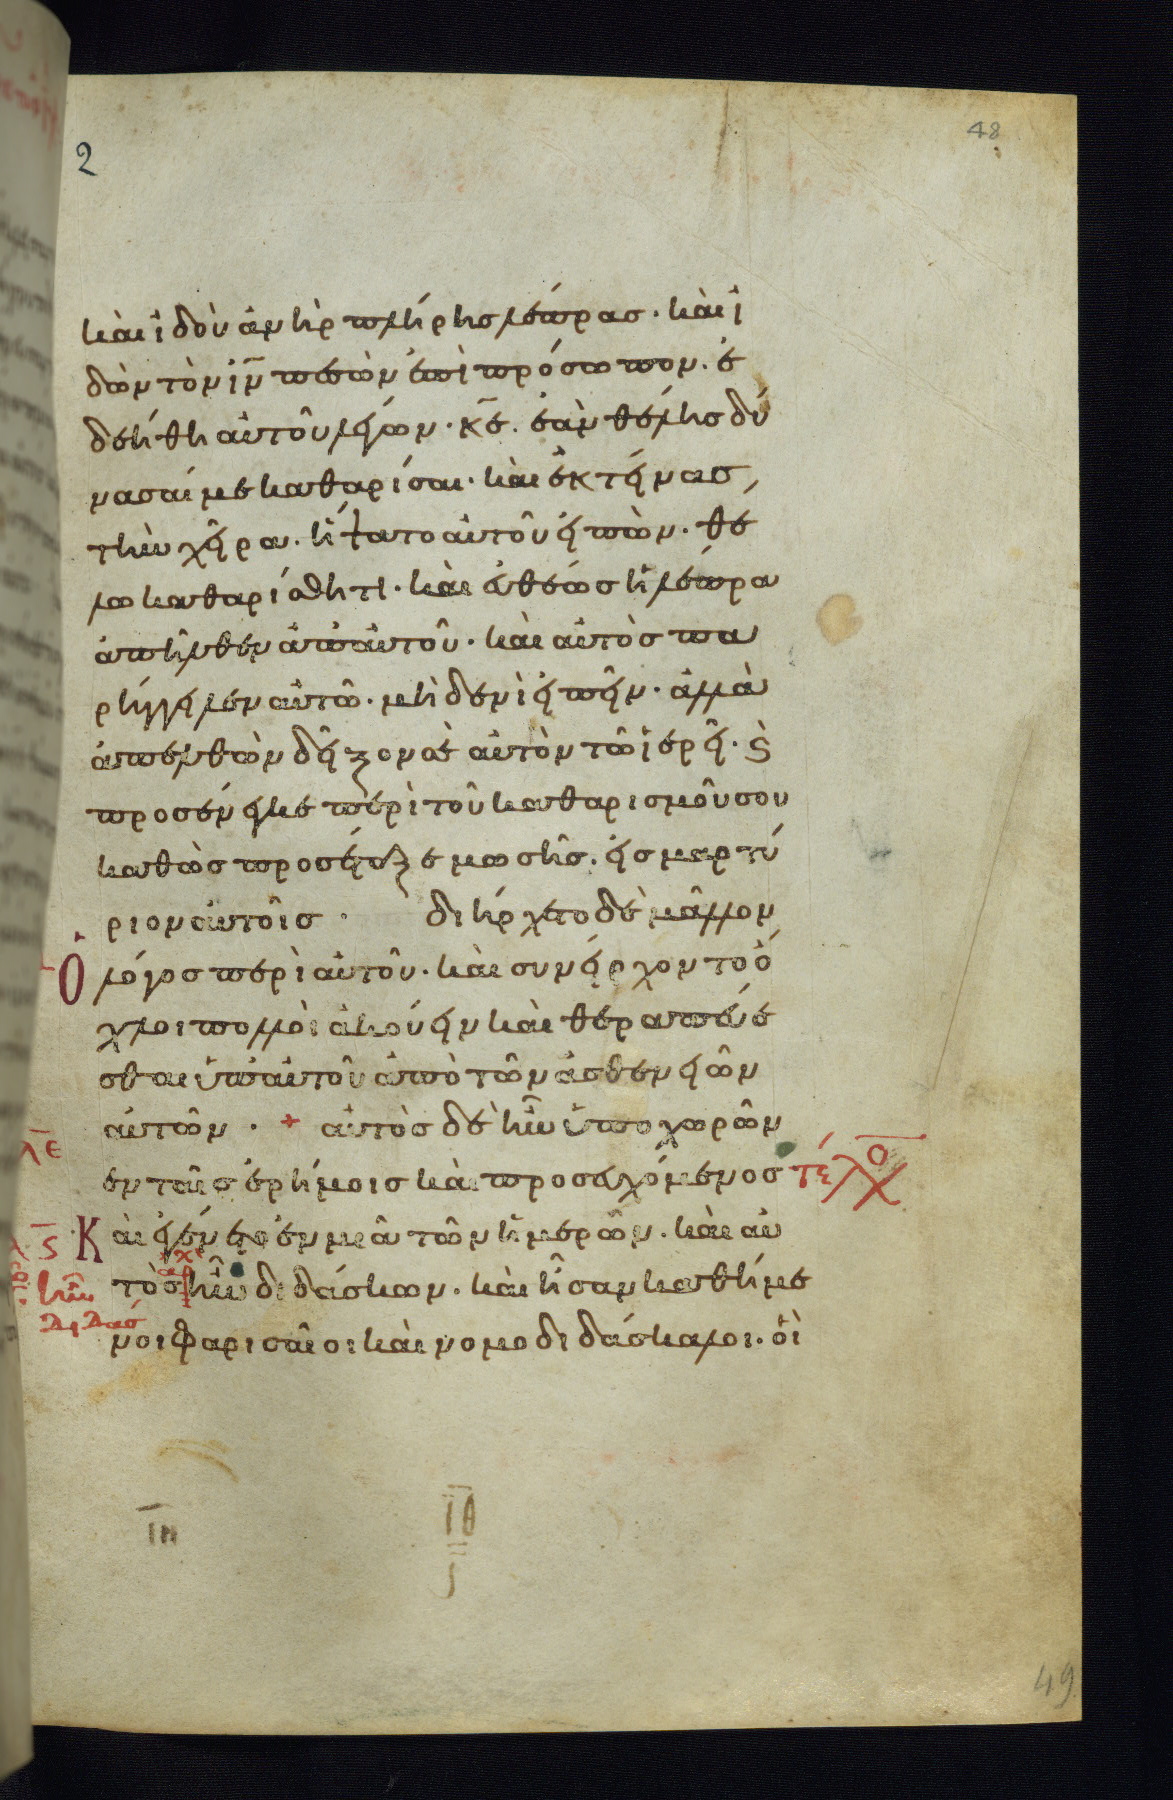 48
2
καὶ ἰδοὺ ἀνὴρ πλήρης λέπρας· καὶ ἰ
δὼν τὸν ιν̅ πεσὼν ἐπὶ πρόσωπον. ἐ
δεήθη αὐτοῦ λέγων· κε̅. ἐὰν θέλης δύ
νασαί με καθαρίσαι· καὶ ἐκτείνας
τὴν χεῖρα. ἥψατο αὐτοῦ εἰπὼν· θέ
λω καθαρίσθητι· καὶ εὐθέως ἡ λέπρα
ἀπῆλθεν ἀπ' αὐτοῦ· καὶ αὐτὸς πα
ρήγγειλεν αὐτῶ. μηδενὶ εἰπεῖν· ἀλλὰ
ἀπελθὼν δεῖξον σεαυτὸν τῶ ἱερεῖ. ϛ̀
προσένεγκε περὶ τοῦ καθαρισμοῦ σου
καθὼς προσέταξε μωσῆς. εἰς μαρτύ
ριον αὐτοῖς · διήρχετο δὲ μᾶλλον
Ὁ λόγος περὶ αὐτοῦ· καὶ συνήρχοντο ὄ
χλοι πολλοὶ ἀκούειν καὶ θεραπεύε
σθαι ὑπ' αὐτοῦ ἀπὸ τῶν ἀσθενειῶν
αὐτῶν · + αὐτὸς δὲ ἦν ὑποχωρῶν
λε̅
ἐν ταῖς ἐρήμοις καὶ προσευχόμενος τέλ
ϛ̅ Καὶ ἐγένετο ἐν μιᾶ τῶν ἡμερῶν. καὶ αὐ
τὸς ἦν διδάσκων. καὶ ἦσαν καθήμε
ἦν
διδάσ
νοι φαρισαῖοι καὶ νομοδιδάσκαλοι. οἳ
ιη̅
ιθ̅
49